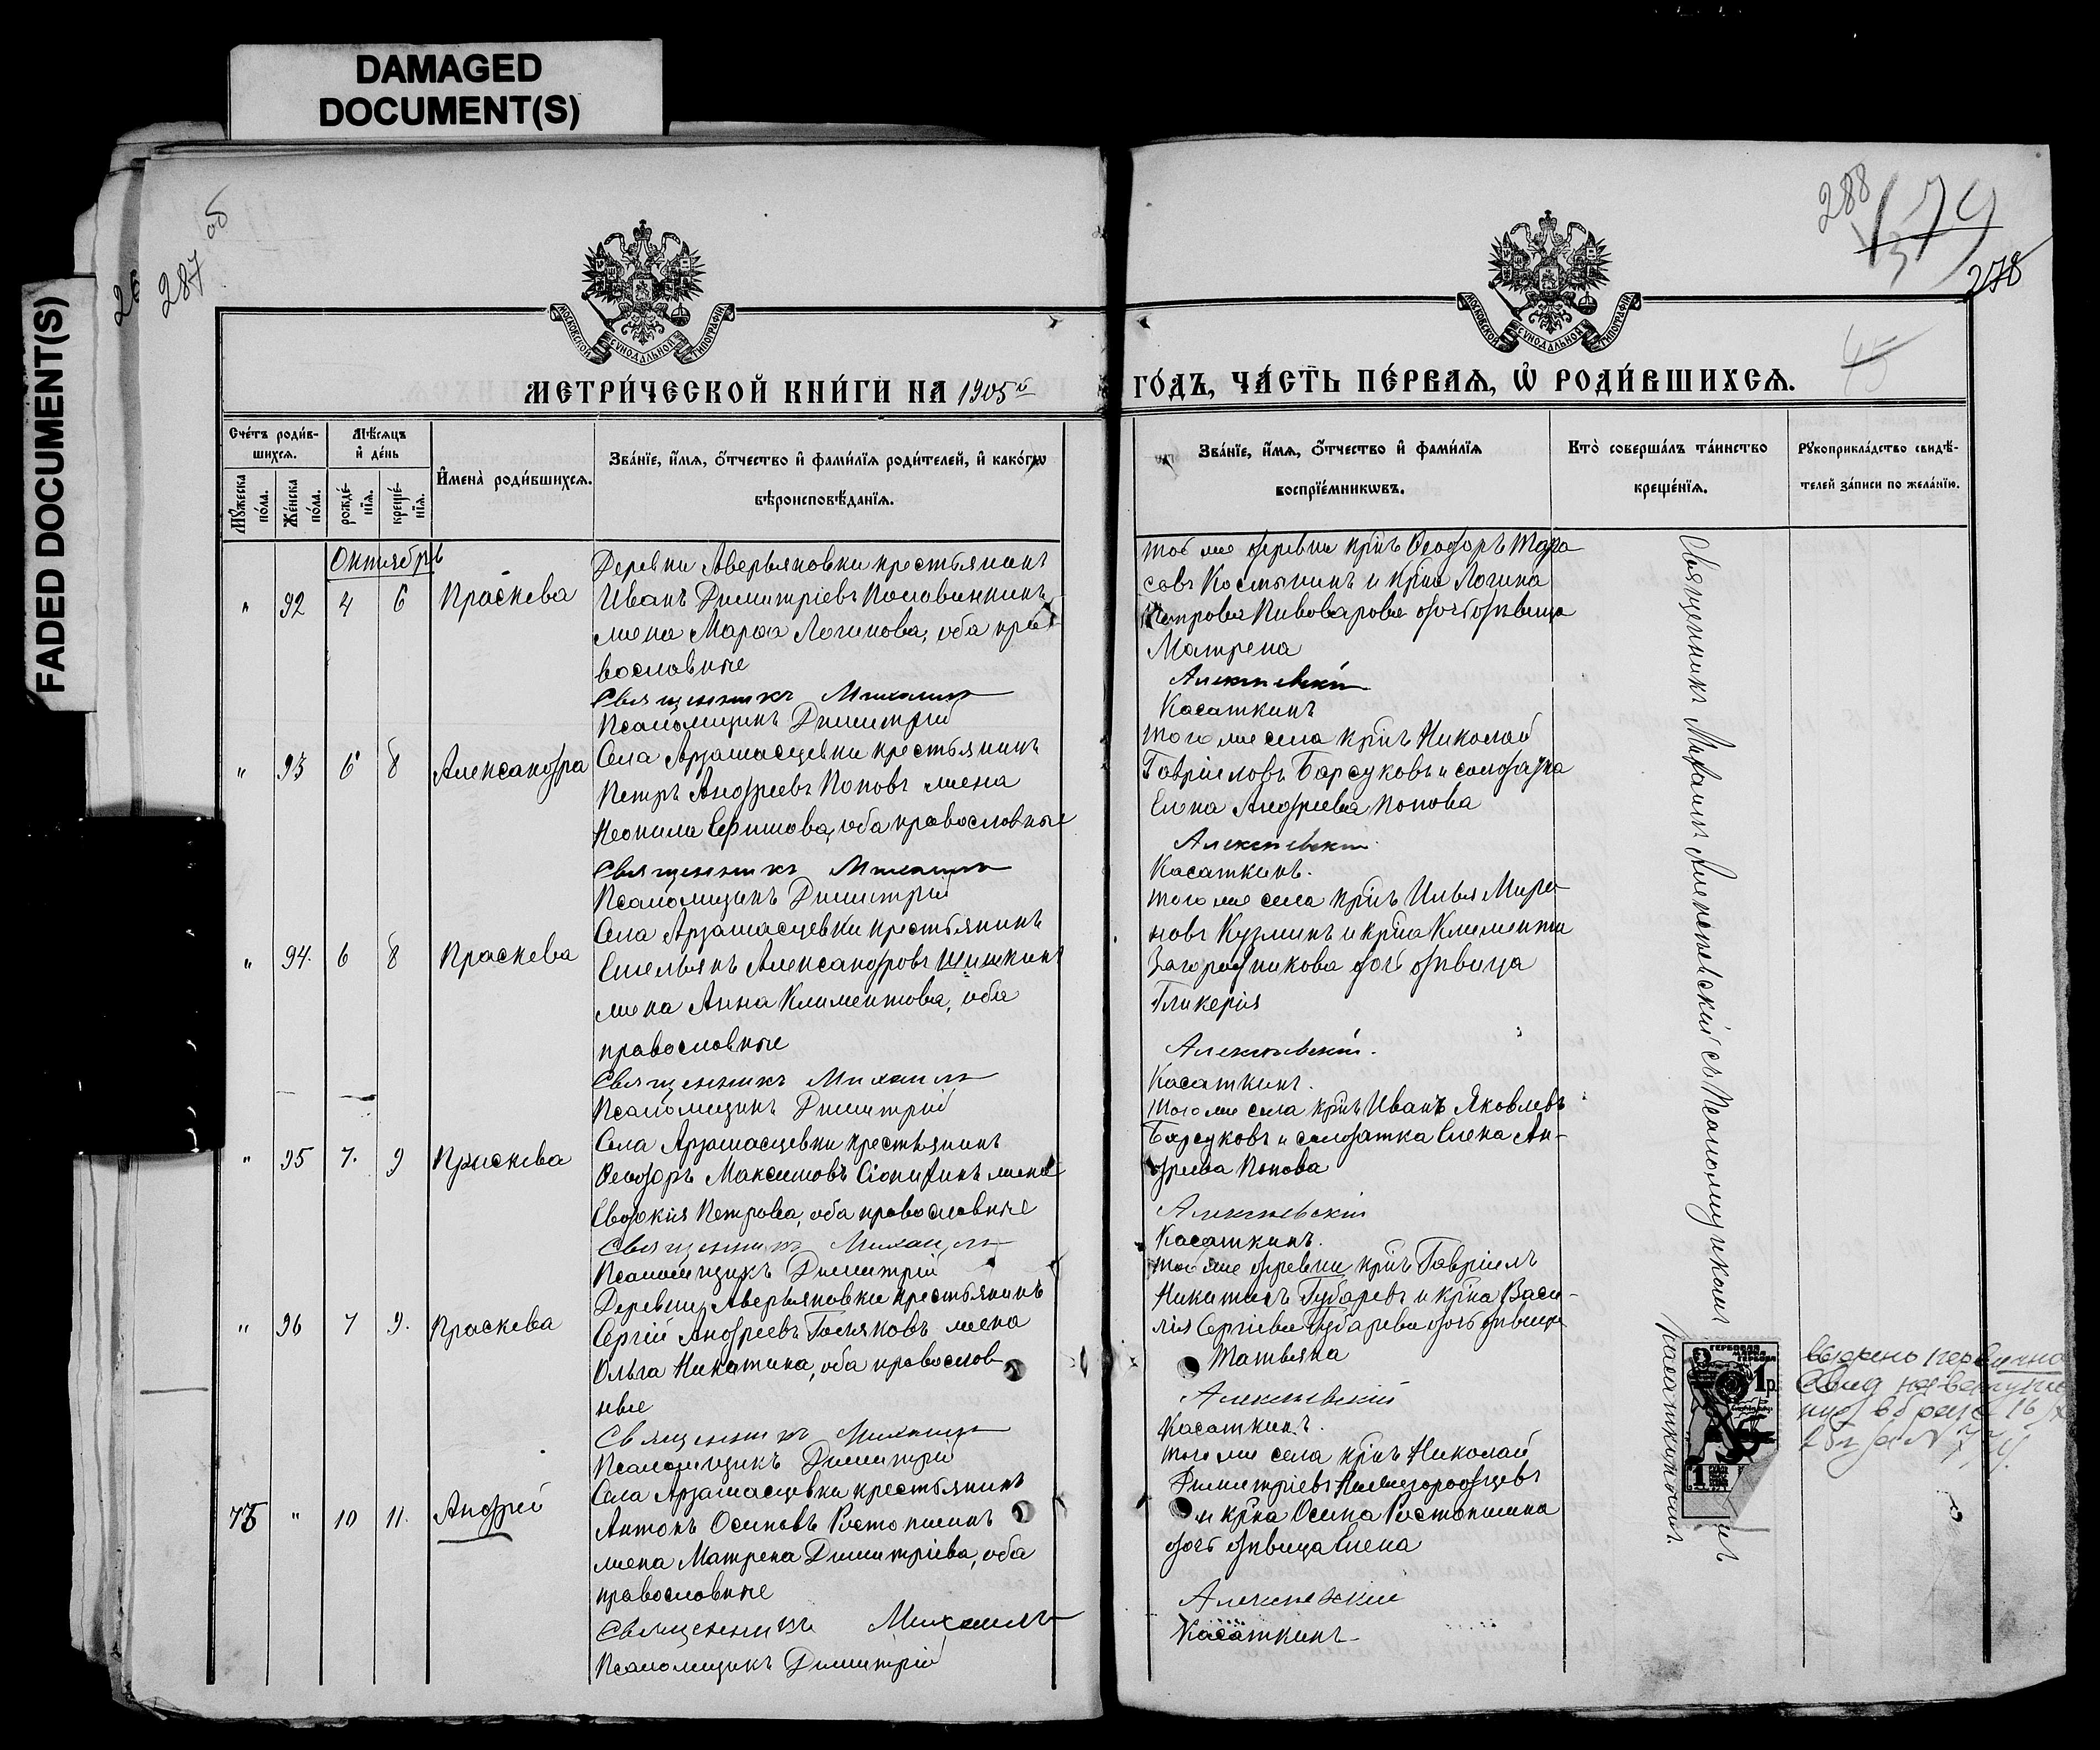 DAMAGED
DOCUMENT(S)
FADED DOCUMENT(S)
287 об
288
179
278
45
МОСКОВСКОЙ СѴНОДАЛЬНОЙ ТИПОГРАФІИ
МОСКОВСКОЙ СѴНОДАЛЬНОЙ ТИПОГРАФІИ
МЕТРИ́ЧЕСКОЙ КНИ́ГИ НА 1905й
ГО́ДЪ, ЧА́СТЬ ПЕ́РВАЯ, Ѡ҆ РОДИ́ВШИХСЯ.
Сче́тъ роди́в-
шихся.
Мꙋ́жеска по́ла.
Же́нска по́ла.
Мѣ́сяцъ
и҆ де́нь
рожде́-
нїя.
креще́-
нїя.
И҆мена̀ роди́вшихся.
Зва́нїе, и҆́мя, ѻ҆́тчество и҆ фами́лїя роди́телей, и҆ како́гѡ
вѣроисповѣ́данїя.
Зва́нїе, и҆́мя, ѻ҆́тчество и҆ фами́лїя
воспрїе́мникѡвъ.
Кто̀ соверша́лъ та́инство
креще́нїя.
Рꙋкоприкла́дство свидѣ́-
телей за́писи по жела́нїю.
Октябрь
" 92 4 6 Праскева
Деревни Аверьяновки крестьянинъ
Иванъ Димитріевъ Половинкинъ
жена Марѳа Логинова, оба пра-
вославные
Священникъ Михаилъ
Псаломщикъ Димитрій
той же деревни кр҃нъ Ѳеодоръ Тара
совъ Костынинъ и кр҃на Логина
Петрова Пивоварова дочь дѣвица
Матрена
Алексѣевскій
Касаткинъ
" 93 6 8 Александра
Села Арзамасцевки крестьянинъ
Петръ Андреевъ Поповъ жена
Неонила Ефимова, оба православные
Священникъ Михаилъ
Псаломщикъ Димитрій
того же села кр҃нъ Николай
Гавріиловъ Барсуковъ и солдатка
Елена Андреева Попова
Алексѣевскій
Касаткинъ.
" 94. 6 8 Праскева
Села Арзамасцевки крестьянинъ
Емельянъ Александровъ Шишкинъ
жена Анна Климентова, оба
православные
Священникъ Михаилъ
Псаломщикъ Димитрій
того же села кр҃нъ Илья Миро
новъ Кузминъ и кр҃на Климента
Загородникова дочь дѣвица
Гликерія
Алексѣевскій.
Касаткинъ.
" 95 7. 9 Праскева
Села Арзамасцевки крестьянинъ
Ѳеодоръ Максимовъ жена
Евдокія Петрова, оба православные
Священникъ Михаилъ
Псаломщикъ Димитрій
того же села кр҃нъ Иванъ Яковлевъ
Барсуковъ и солдатка Елена Ан-
дреева Попова
Алексѣевскій
Касаткинъ.
" 96 7 9. Праскева
Деревни Аверьяновки крестьянинъ
Сергій Андреевъ жена
Ольга Никитина, оба православ-
ные
Священникъ Михаилъ
Псаломщикъ Димитрій
той же деревни кр҃нъ Гавріилъ
Никитинъ Губаревъ и кр҃на Васи-
лія Сергіева Губарева дочь дѣвица
Татьяна
Алексѣевскій
Касаткинъ.
75 " 10 11. Андрей
Села Арзамасцевки крестьянинъ
Антонъ Осиповъ Ростопшинъ
жена Матрена Димитріева, оба
православные
Священникъ Михаилъ
Псаломщикъ Димитрій
того же села кр҃нъ Николай
Димитріевъ Нижегородцевъ
и кр҃на Осипа Ростопшина
дочь дѣвица Елена
Алексѣевскій
Касаткинъ
Священникъ Михаилъ Алексѣевскій съ Псаломщикомъ
Касаткинымъ.
ГЕРБОВАЯ
МАРКА
1р.